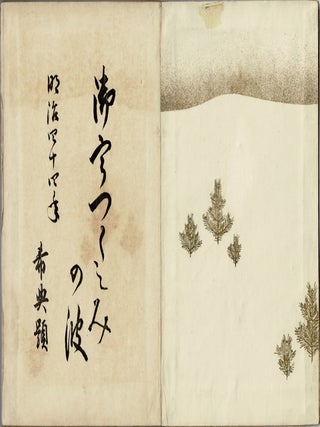 御宇つくしみ
の波
明治四十四年
希典題